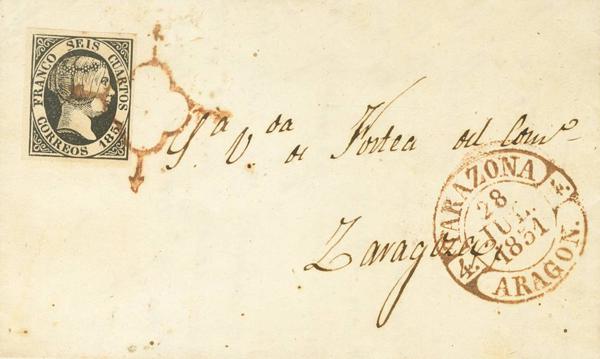 FRANCO SEIS CUARTOS
CORREOS 1851
Sra. Vda. de Fortea del Como.
Zaragoza
TARAZONA
28
JUL.
1851
4.
4.
ARAGON.